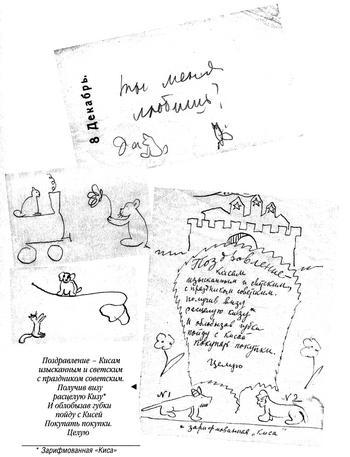 8 Декабрь.
ты меня
любишь?
да
Поздравление
Кисам
изысканным и светским
с праздником советским.
получив визу
расцелую Кизу*
И облобызав губки
пойду с Кисей
Покупать покупки.
Целую
N1
N2
* зарифмованная „Киса"
Поздравление – Кисам
изысканным и светским
с праздником советским.
Получив визу
расцелую Кизу*
И облобызав губки
пойду с Кисей
Покупать покупки.
Целую
* Зарифмованная «Киса»